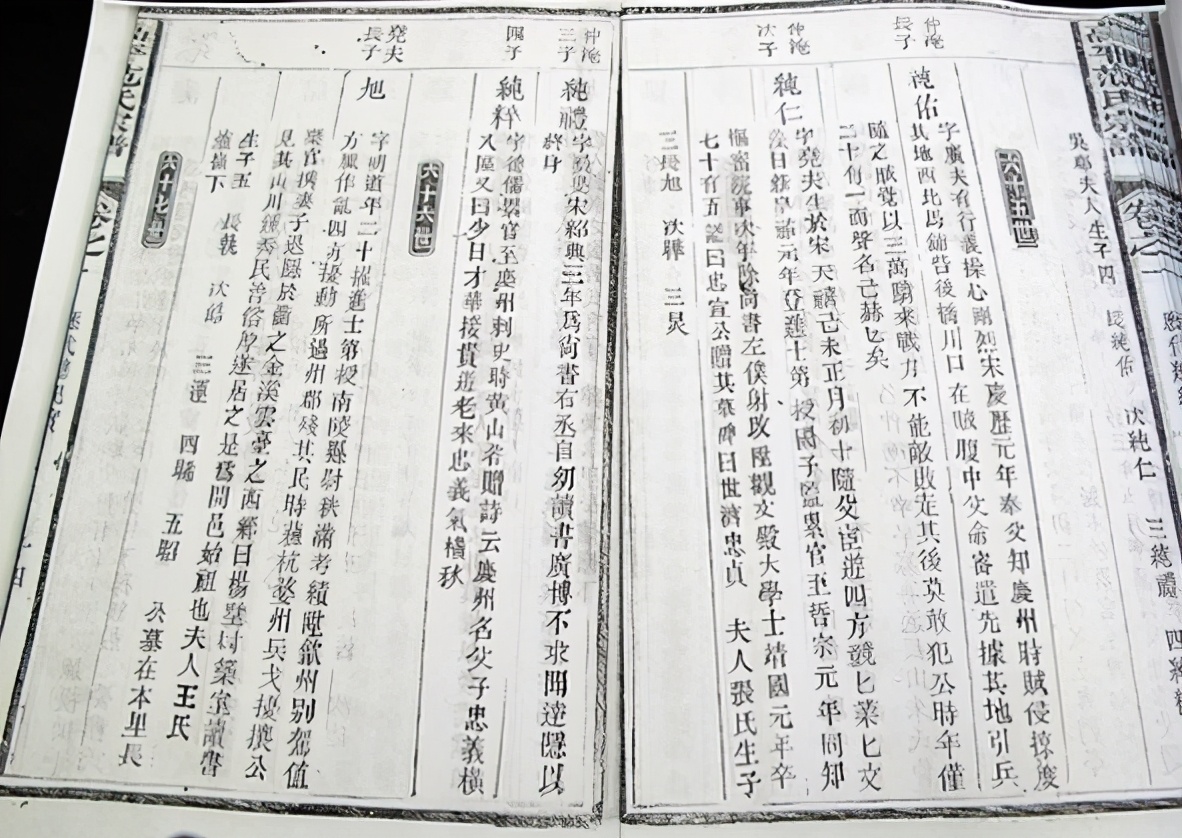 吳郡夫人生子四 長純佑 次純仁 三純禮 四純粹
六十五世
仲淹長子
純佑 字 夫有行義操心剛烈宋慶歷元年奉父知慶州時賊侵掠慶
其地西北馬鋪砦後橋川口在賊腹中父命密遣先據其地引兵
隨之賊覺以三萬騎來戰力不能敵敗走其後莫敢犯公時年僅
二十有一而聲名已赫匕矣
仲淹次子
純仁 字堯夫生於宋天禧己未正月初十隨父宦遊四方兢匕業匕文
日新皇祐元年登進士第授國子監累官至哲宗元年同知
樞密院事次年除尚書左僕射改陞觀文殿大學士靖國元年卒
七十有五謚曰忠宣公贈其墓碑曰世濟忠貞 夫人張氏生子
三長旭 次曄 三炅
仲淹三子
純禮 字 叟宋紹興三年爲尚書右丞自幼讀書廣博不求聞達隱以
終身
四子
純粹 字德儒累官至慶州刺史時黃山谷贈詩云慶州名父子忠義橫
八區又曰少日才華接貴遊老來忠義氣橫秋
六十六世
堯夫長子
旭 字明道年二十擢進士第授南陵縣尉秩滿考績陞歙州別駕值
方臘作亂四方擾動所過州郡殘其民時蘇杭婺州兵戈擾攘公
棄官携妻子退隱於 之金溪雲臺之西鄉曰楊墅村築室讀書
見其山川鍾秀民善俗厚遂居之是爲開邑始祖也夫人王氏
生子五 長 次 三 四 五昭 公墓在本里長
下
六十七世